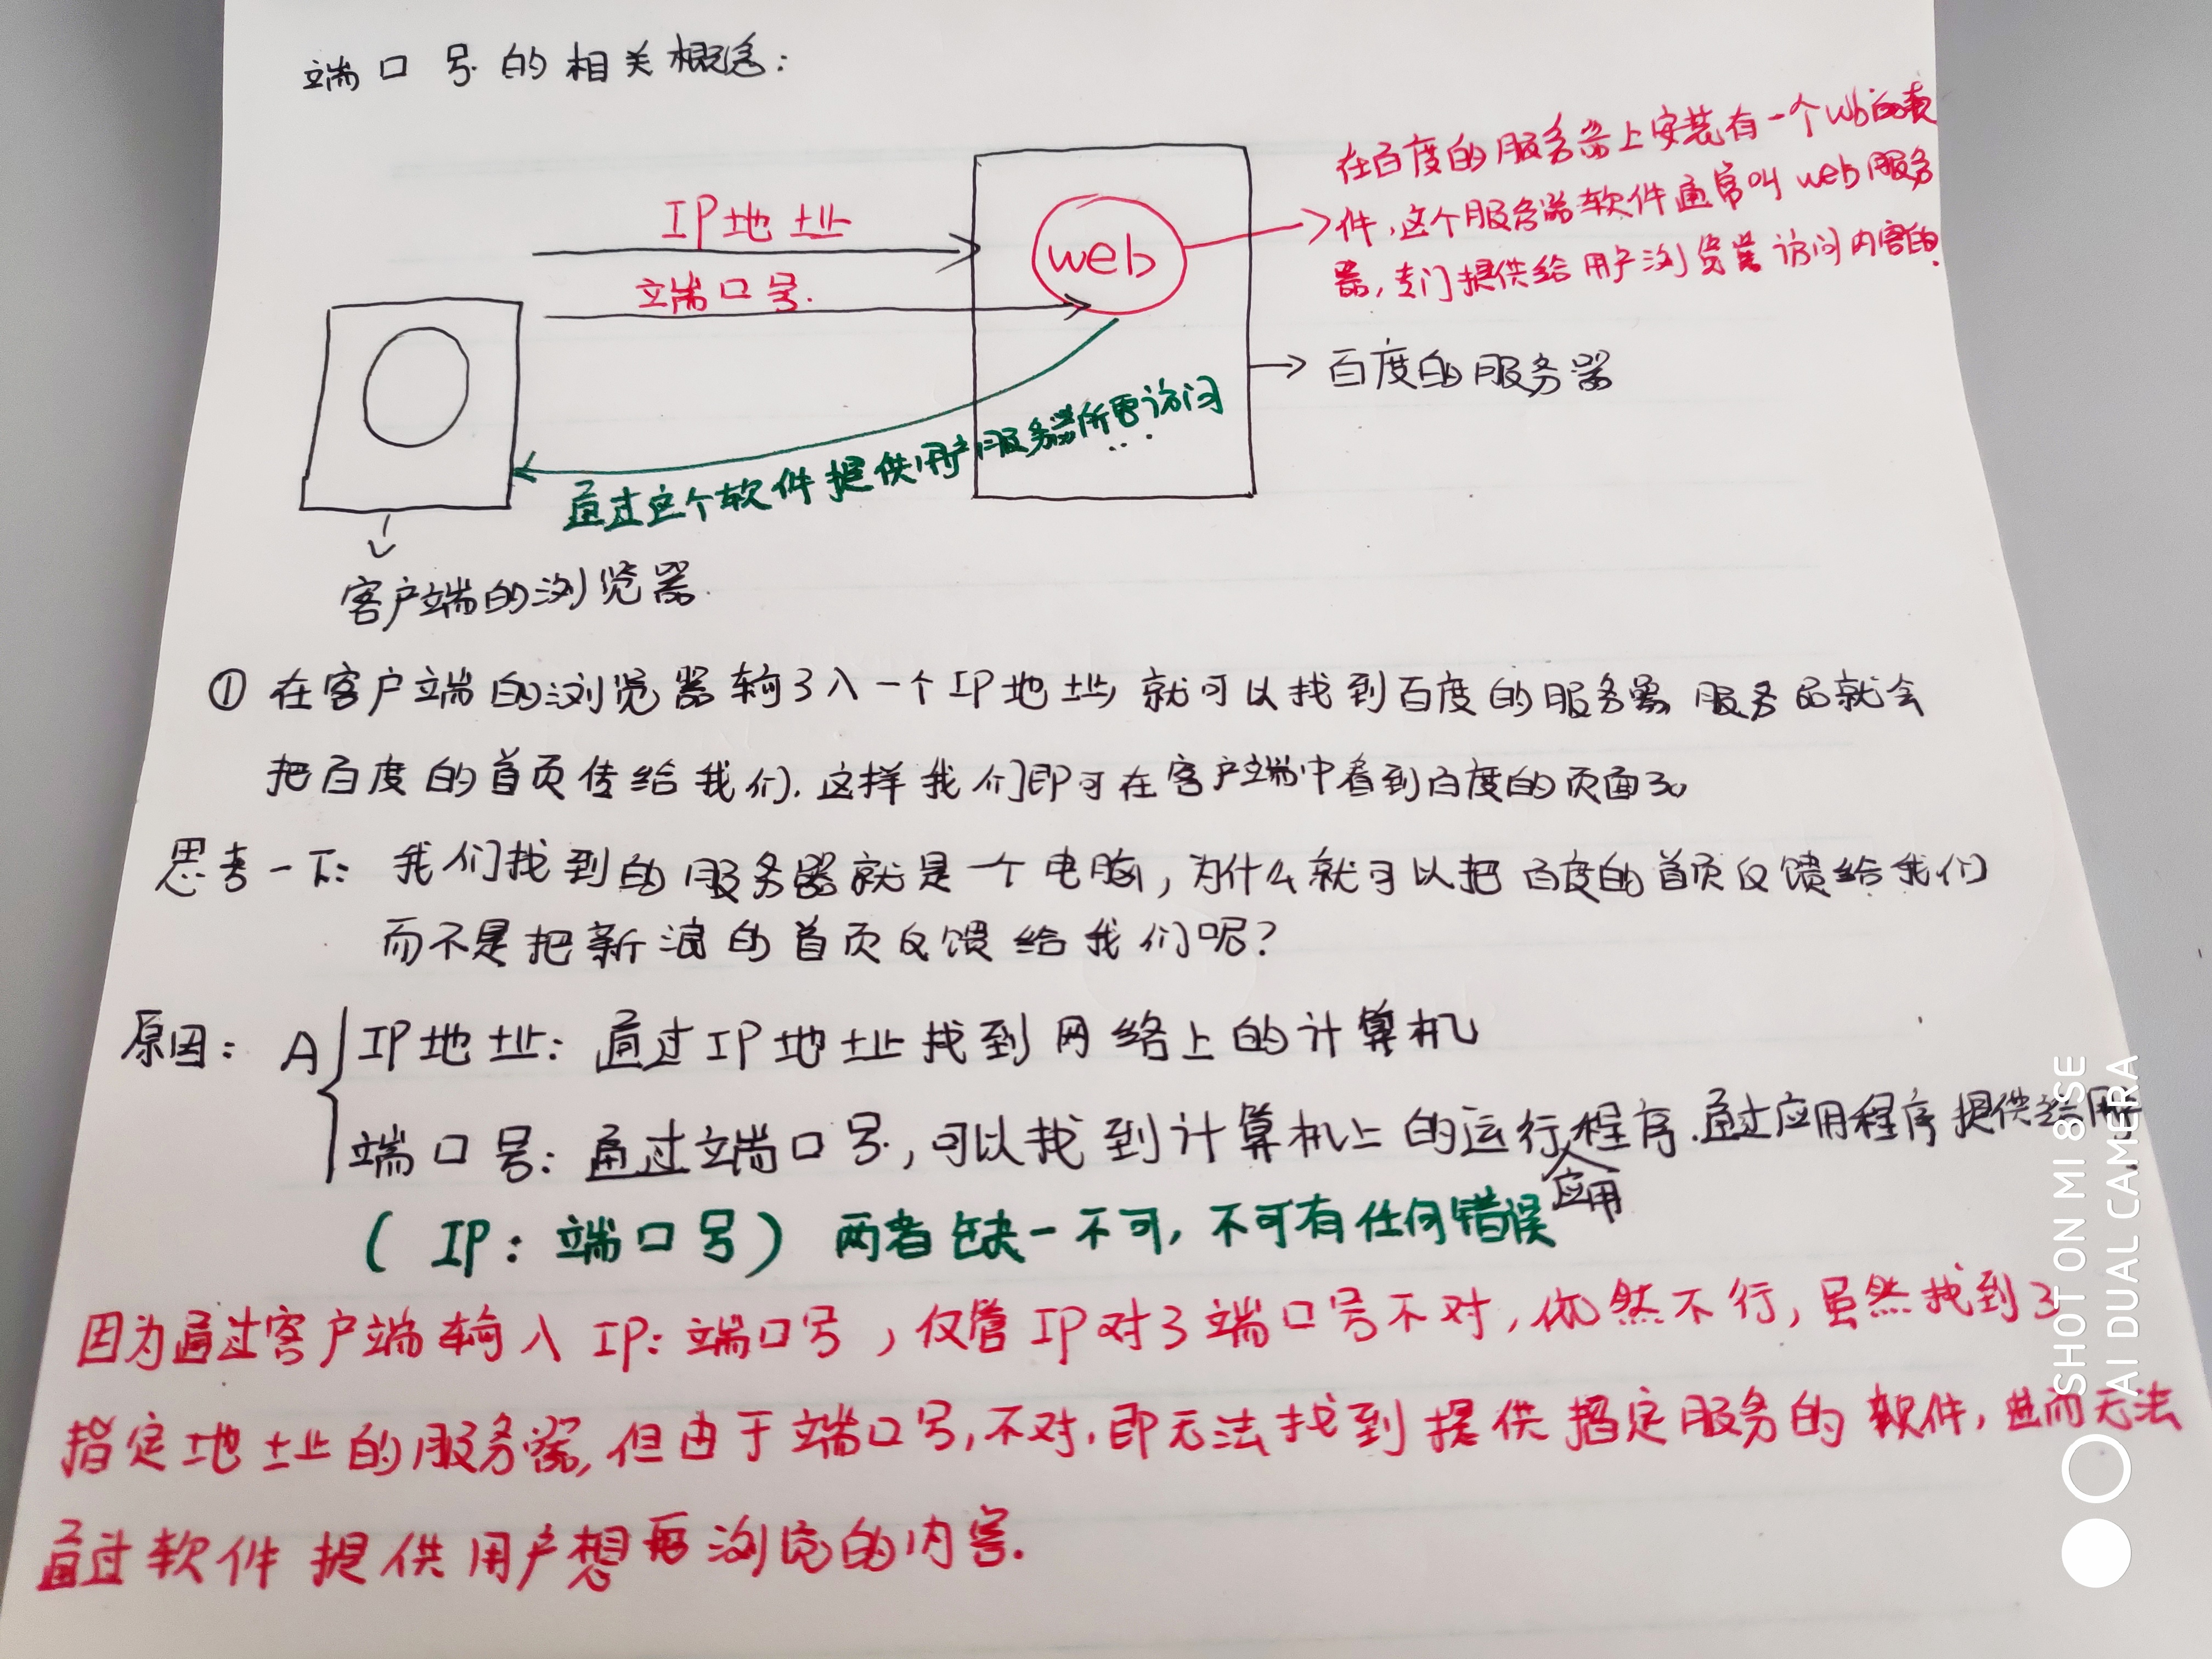 端口号的相关概念:
在百度的服务器上安装有一个web的软
件,这个服务器软件通常叫web服务
器,专门提供给用户浏览器访问内容的.
IP地址
端口号.
web
百度的服务器
通过这个软件提供用户服务器所要访问
...
客户端的浏览器.
① 在客户端的浏览器输了入一个IP地址 就可以找到百度的服务器 服务器就会
把百度的首页传给我们.这样我们即可在客户端中看到百度的页面了。
思考一下: 我们找到的服务器就是一个电脑,为什么就可以把百度的首页反馈给我们
而不是把新浪的首页反馈给我们呢?
原因: A IP地址: 通过IP地址找到网络上的计算机
端口号: 通过端口号,可以找到计算机上的运行应用程序.通过应用程序提供给用户
(IP:端口号) 两者缺一不可,不可有任何错误
因为通过客户端输入IP:端口号,仅管IP对了端口号不对,依然不行,虽然找到了
指定地址的服务器,但由于端口号,不对,即无法找到提供指定服务的软件,进而无法
通过软件提供用户想要浏览的内容.
SHOT ON MI 8 SE
AI DUAL CAMERA